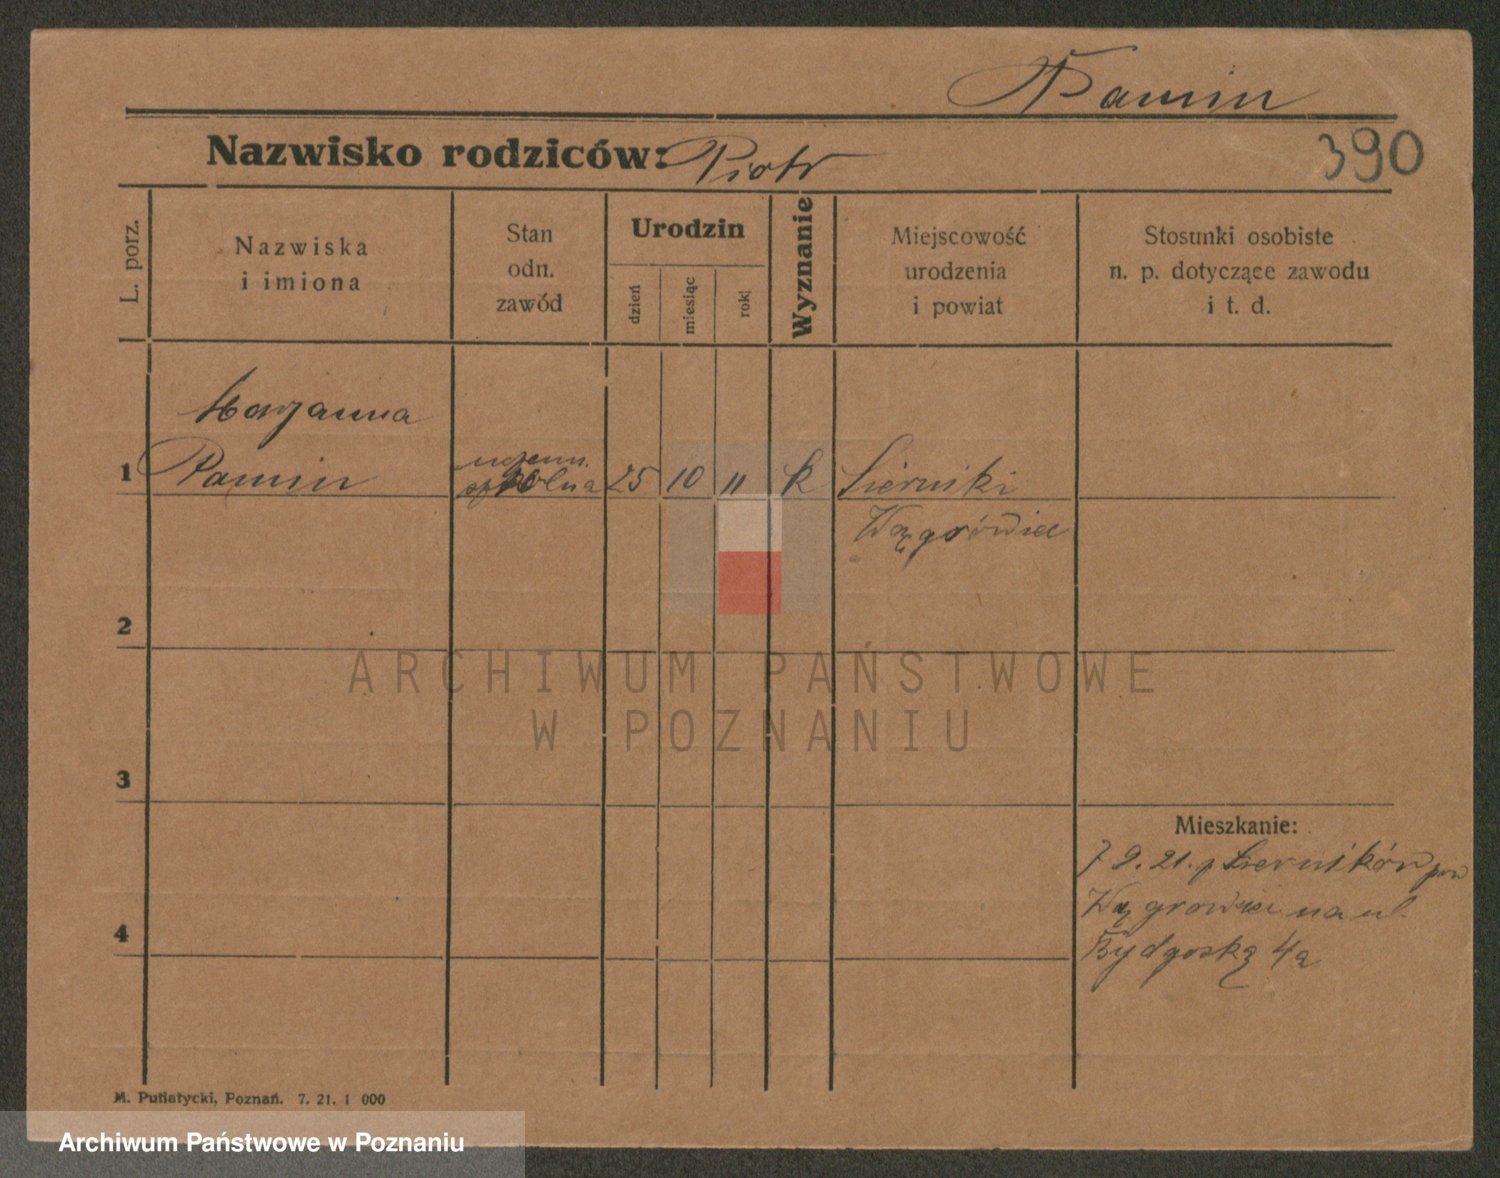 Pamin
Nazwisko rodziców: Piotr
390
L. porz.
Nazwiska
i imiona
Stan
odn.
zawód
Urodzin
dzień
miesiąc
rok
Wyznanie
Miejscowość
urodzenia
i powiat
Stosunki osobiste
n. p. dotyczące zawodu
i t. d.
Marjanna
1 Pamin 25 10 11 k Sierniki
Wągrówiec
2
ARCHIWUM PAŃSTWOWE
W POZNANIU
3
Mieszkanie:
7 9. 21. z Sierników pow
Wągrowiec na ul.
4
Bydgoską 4a
M. Putiatycki, Poznań. 7. 21. 1 000
Archiwum Państwowe w Poznaniu